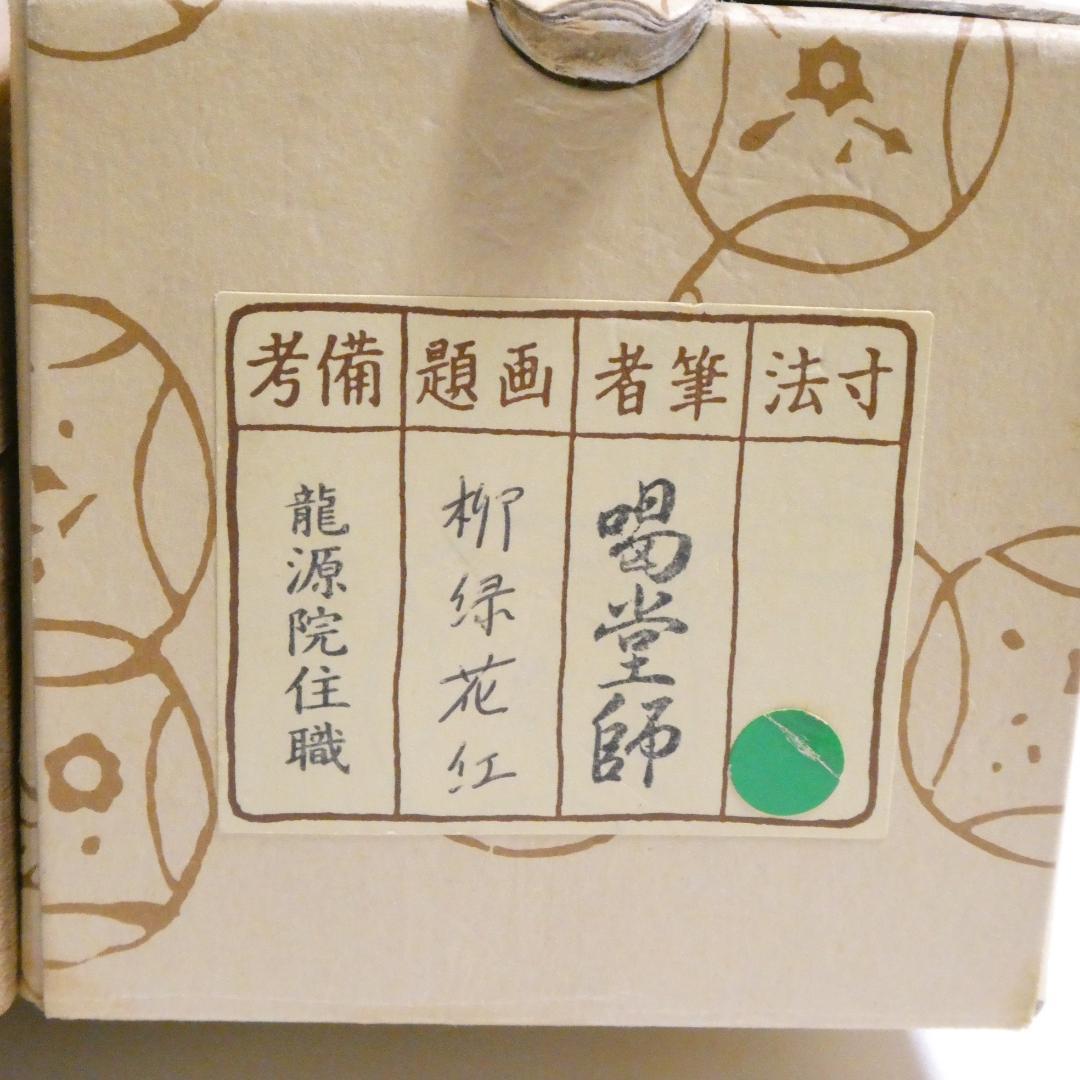 寸法
筆者
喝堂師
画題
柳緑花紅
備考
龍源院住職